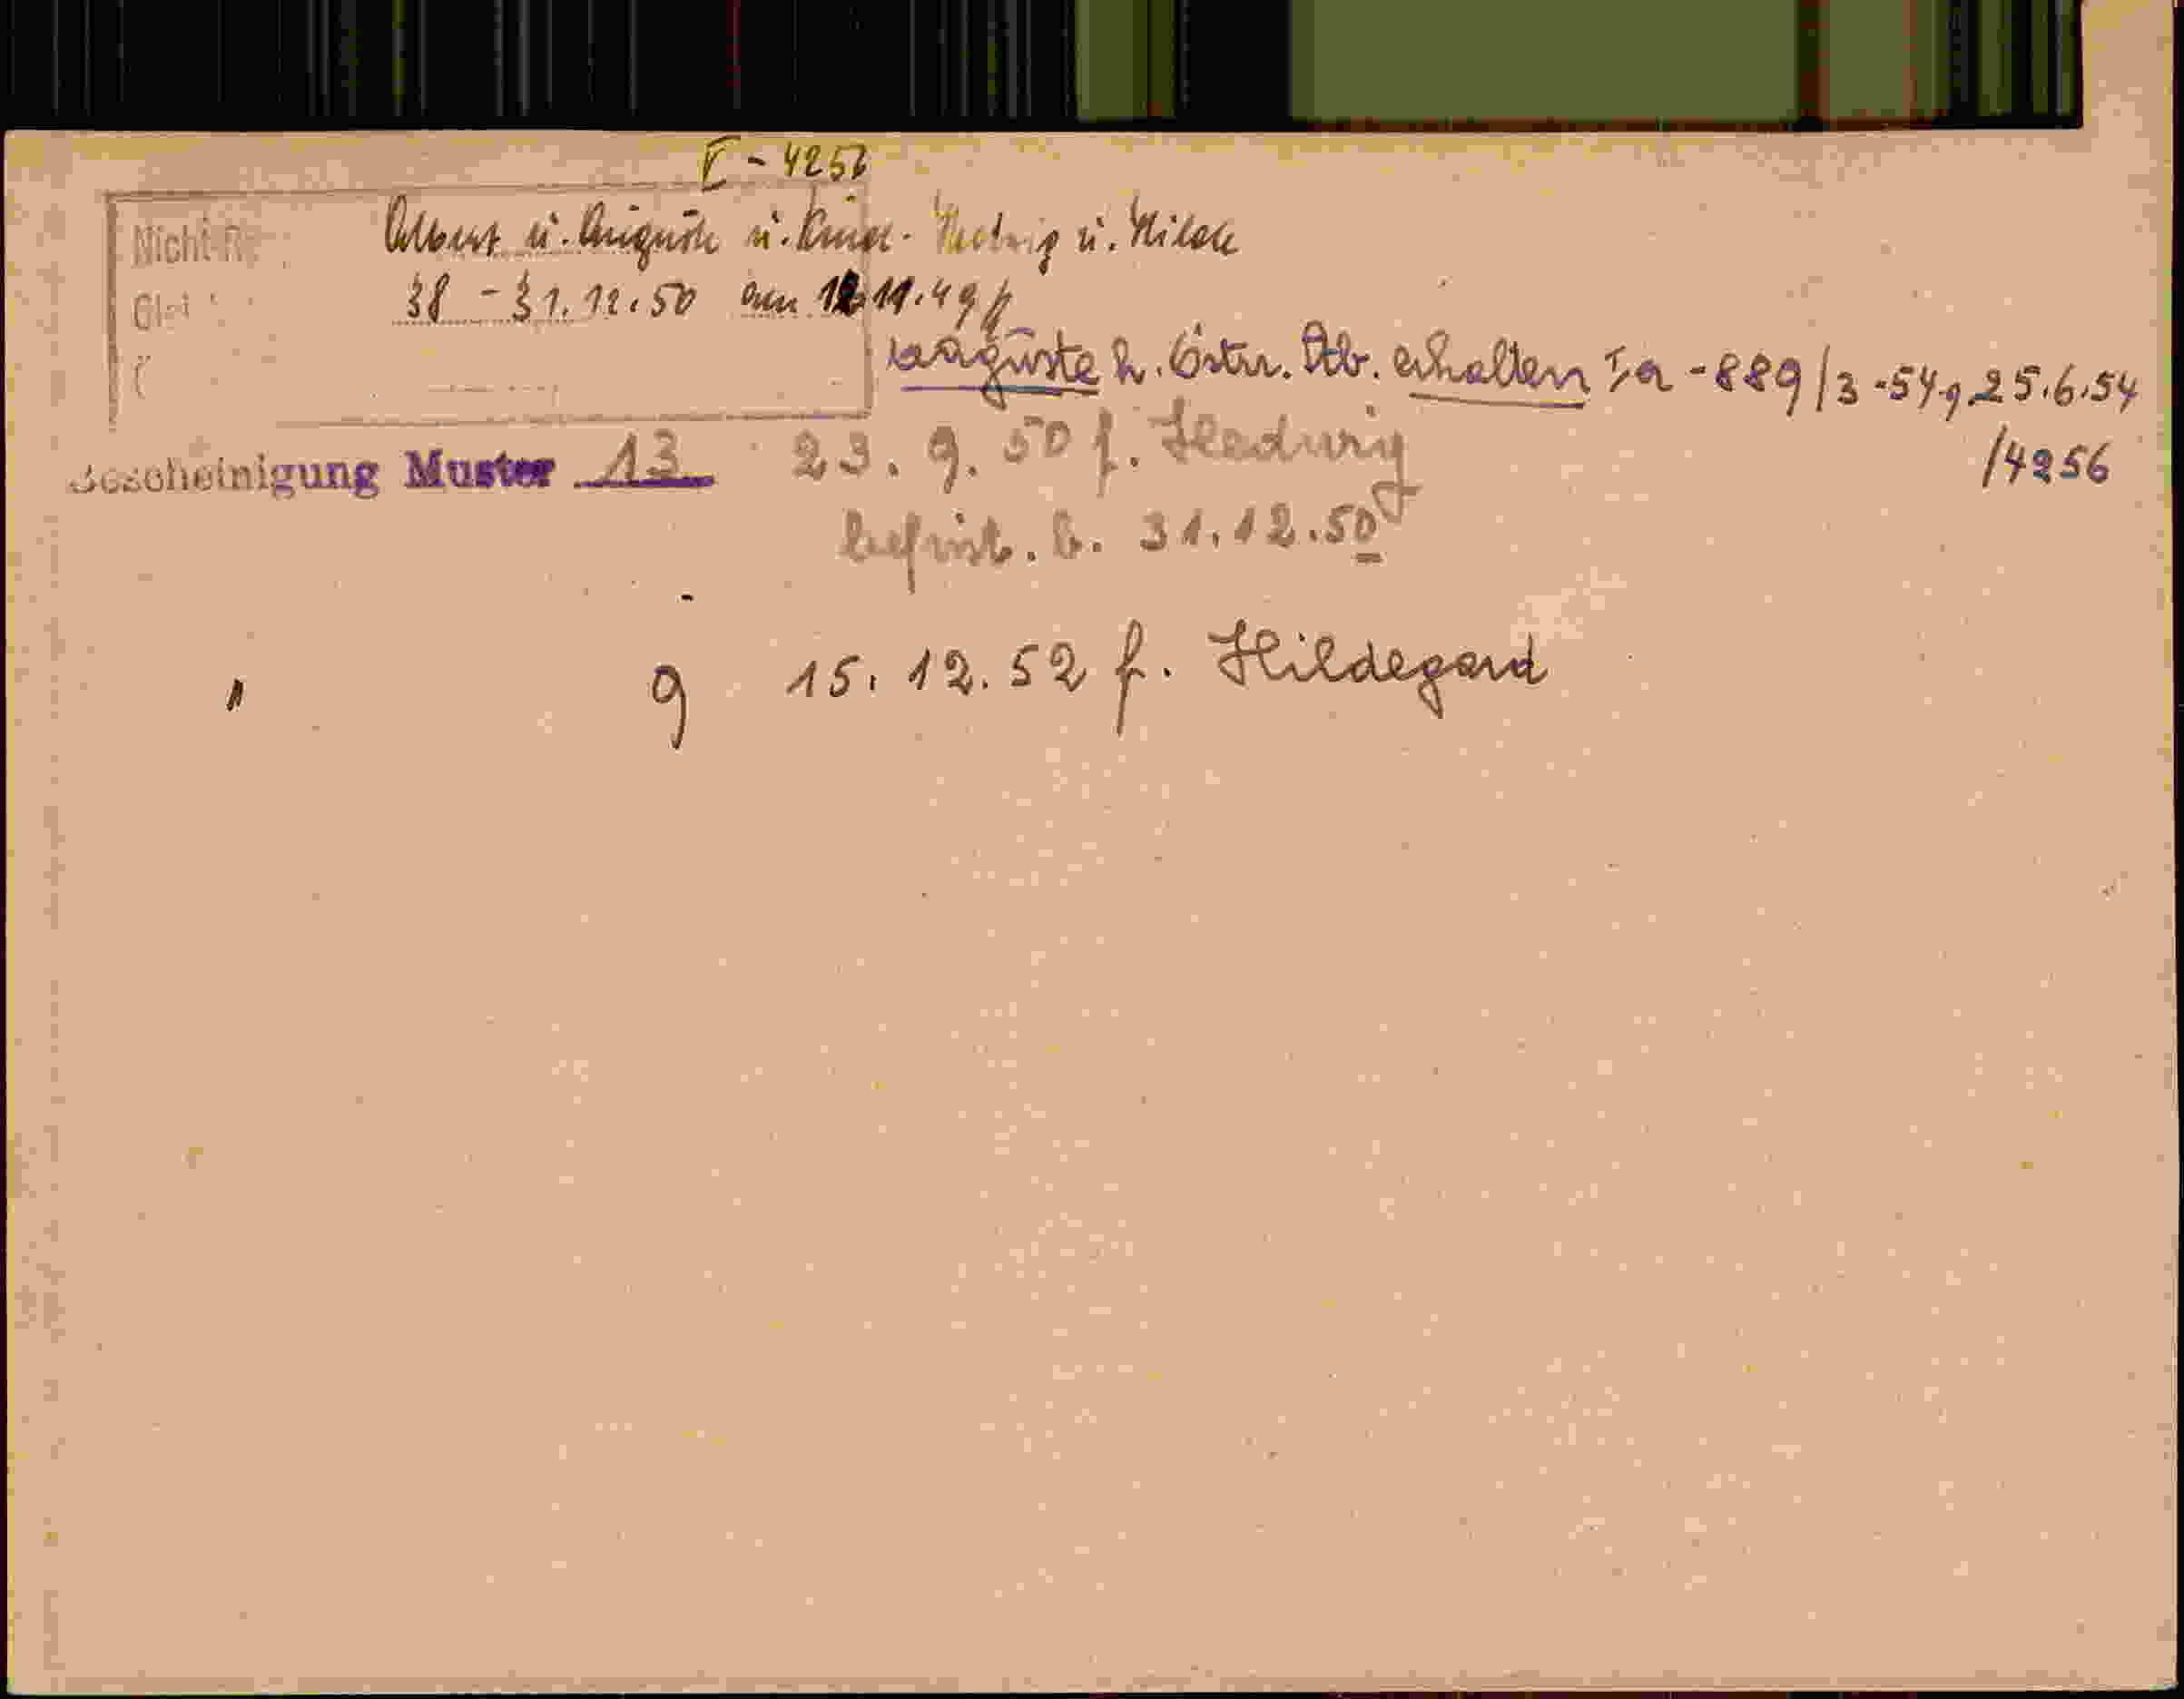 V - 4256
Nicht-R
Albert u. Auguste u. Kind. Hedwig u. Hilde
Gl
38 - 31.12.50 am 12.11.49
Auguste h. Östr. Stb. erhalten I,a - 889/3-54 g 25.6.54
/4256
Bescheinigung Muster 13 23. 9. 50 f. Hedwig
befrist. b. 31.12.50
" 9 15. 12. 52 f. Hildegard